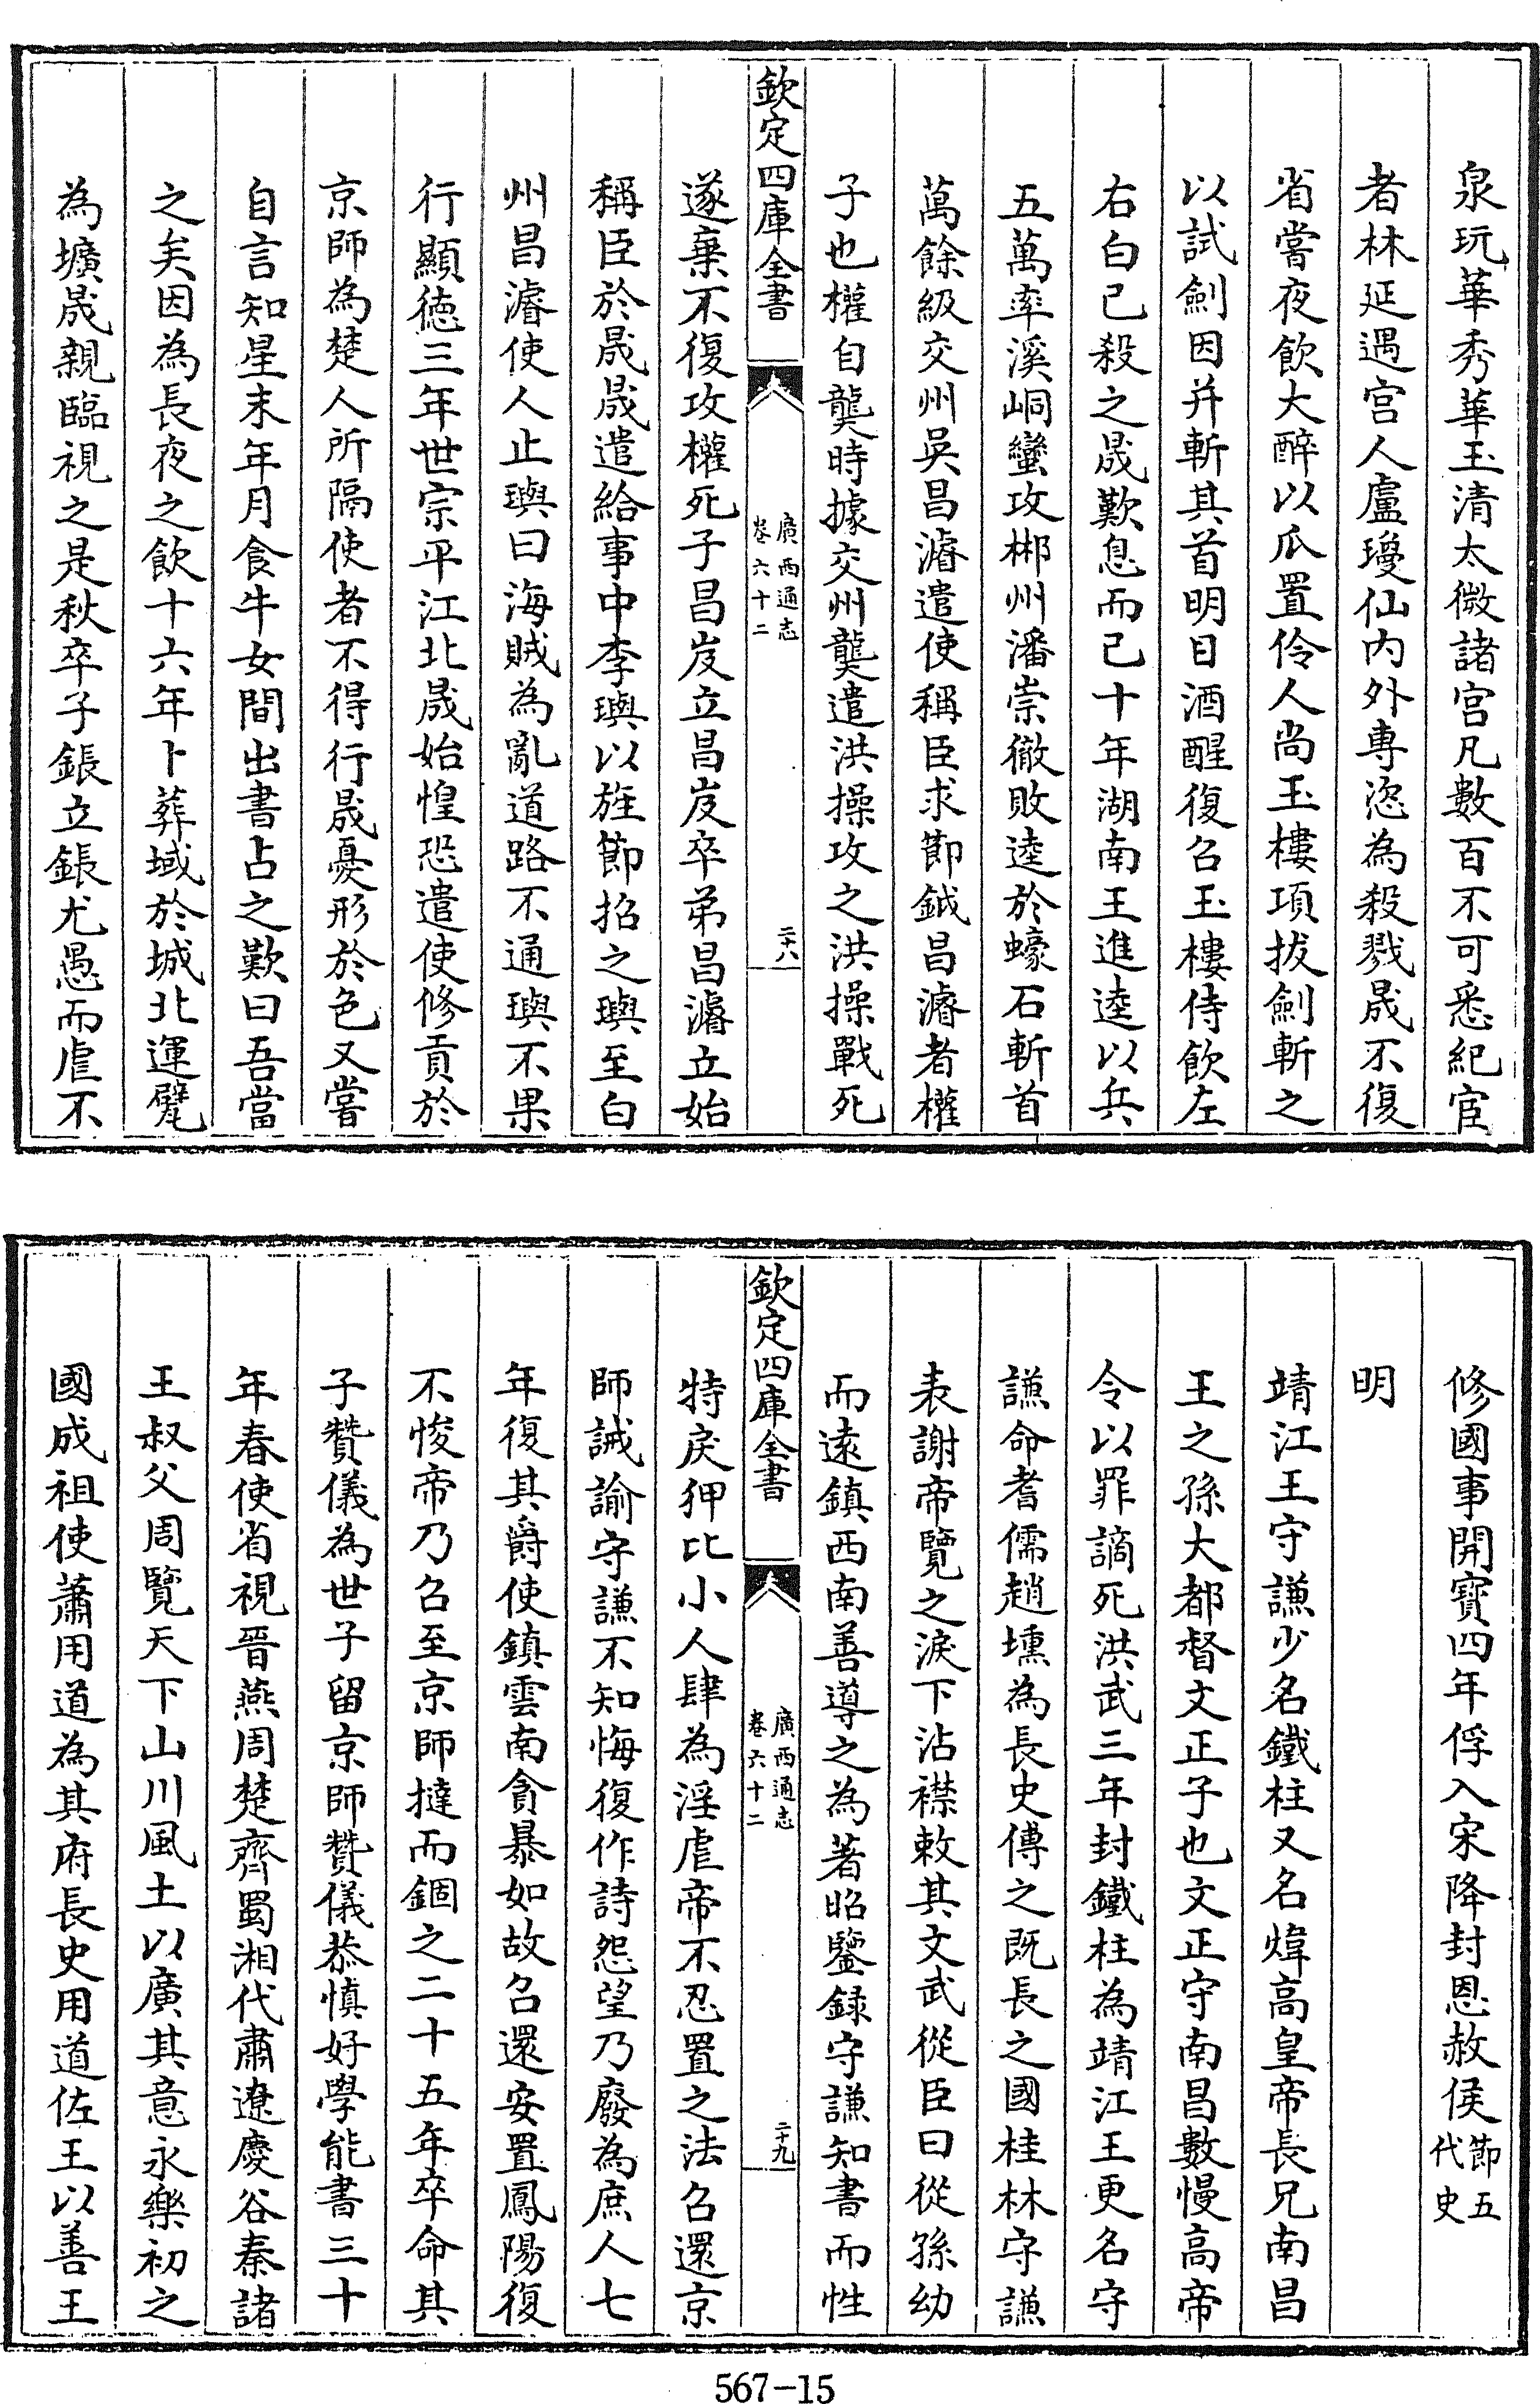 泉玩華秀華玉清太微諸宫凡數百不可悉紀宦
者林延遇宫人盧瓊仙内外專恣為殺戮晟不復
省嘗夜飲大醉以瓜置伶人尚玉樓項拔劍斬之
以試劍因并斬其首明日酒醒復召玉樓侍飲左
右白已殺之晟歎息而已十年湖南王進逵以兵
五萬率溪峒蠻攻郴州潘崇徹敗逵於蠔石斬首
萬餘級交州吳昌濬遣使稱臣求節鉞昌濬者權
子也權自龑時據交州龑遣洪操攻之洪操戰死
欽定四庫全書
廣西通志
卷六十二
二十八
遂棄不復攻權死子昌岌立昌岌卒弟昌濬立始
稱臣於晟晟遣給事中李璵以旌節招之璵至白
州昌濬使人止璵曰海賊為亂道路不通璵不果
行顯德三年世宗平江北晟始惶恐遣使修貢於
京師為楚人所隔使者不得行晟憂形於色又嘗
自言知星末年月食牛女間出書占之歎曰吾當
之矣因為長夜之飲十六年卜葬域於城北運甓
為壙晟親臨視之是秋卒子鋹立鋹尤愚而虐不
修國事開寳四年俘入宋降封恩赦侯節五
代史
明
靖江王守謙少名鐵柱又名煒高皇帝長兄南昌
王之孫大都督文正子也文正守南昌數慢高帝
令以罪謫死洪武三年封鐵柱為靖江王更名守
謙命耆儒趙壎為長史傅之既長之國桂林守謙
表謝帝覽之淚下沾襟敕其文武從臣曰從孫幼
而遠鎮西南善導之為著昭鑒録守謙知書而性
欽定四庫全書
廣西通志
卷六十二
二十九
特戾狎比小人肆為淫虐帝不忍置之法召還京
師誡諭守謙不知悔復作詩怨望乃廢為庶人七
年復其爵使鎮雲南貪暴如故召還安置鳳陽復
不悛帝乃召至京師撻而錮之二十五年卒命其
子贊儀為世子留京師贊儀恭慎好學能書三十
年春使省視晉燕周楚齊蜀湘代肅遼慶谷秦諸
王叔父周覽天下山川風土以廣其意永樂初之
國成祖使蕭用道為其府長史用道佐王以善王
567-15